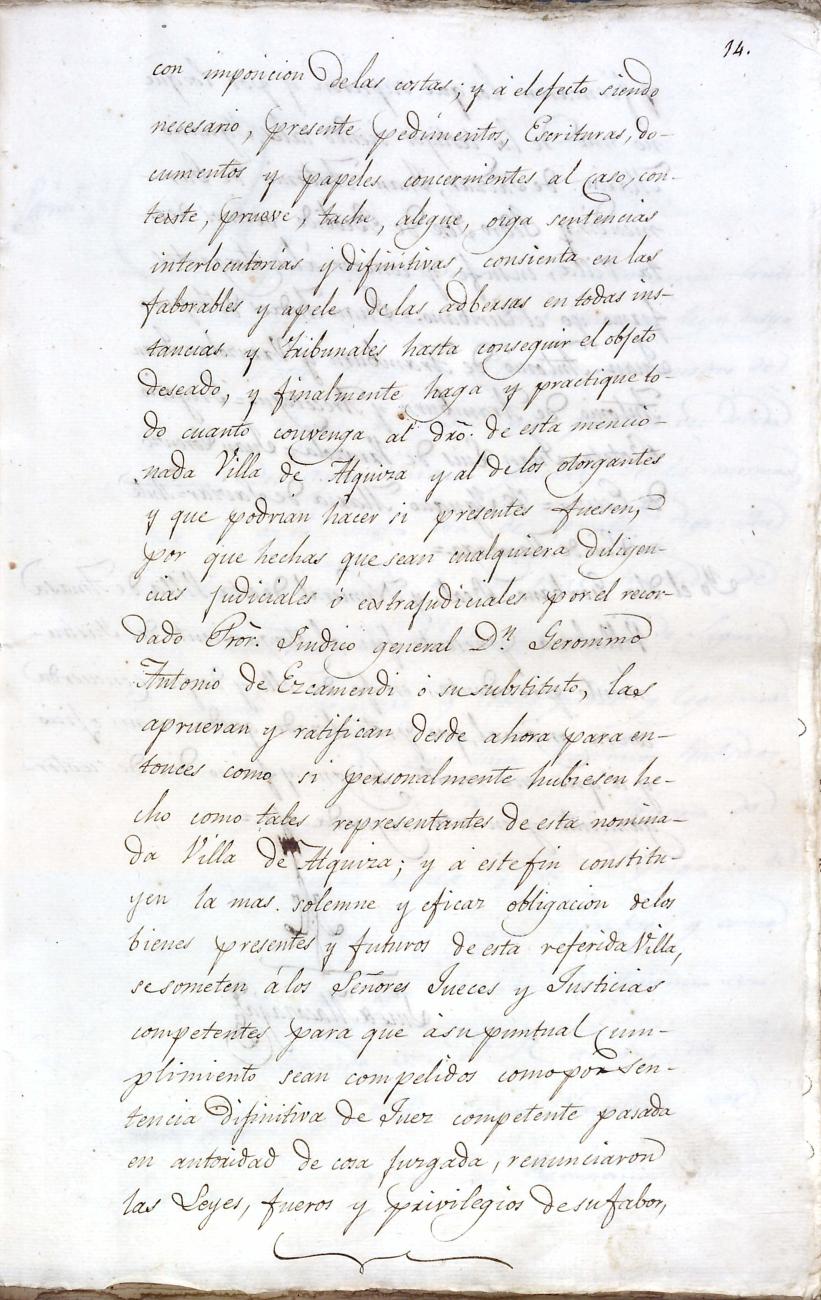 14.
con imposicion de las costas; y á el efecto siendo
necesario, presente pedimentos, Escrituras, do-
cumentos y papeles concernientes al caso, con-
texte, prueve, tache, alegue, oiga sentencias
interlocutorias y difinitivas, consienta en las
faborables y apele de las adbersas en todas ins-
tancias y tribunales hasta conseguir el objeto
deseado, y finalmente haga y practique to-
do cuanto convenga al dro. de esta mencio-
nada Villa de Alquiza y al de los otorgantes
y que podrian hacer si presentes fuesen,
por que hechas que sean cualquiera diligen-
cias judiciales ó extrajudiciales por el recor-
dado Pror. Sindico general Dn. Geronimo
Antonio de Ezcamendi ó su substituto, las
apruevan y ratifican desde ahora para en-
tonces como si personalmente hubiesen he-
cho como tales representantes de esta nomina-
da Villa de Alquiza; y á este fin constitu-
yen la mas solemne y eficaz obligacion de los
bienes presentes y futuros de esta referida Villa,
se someten á los Señores Jueces y Justicias
competentes para que á su puntual cum-
plimiento sean compelidos como por sen-
tencia difinitiva de Juez competente pasada
en autoridad de cosa juzgada, renunciaron
las Leyes, fueros y privilegios de su fabor,